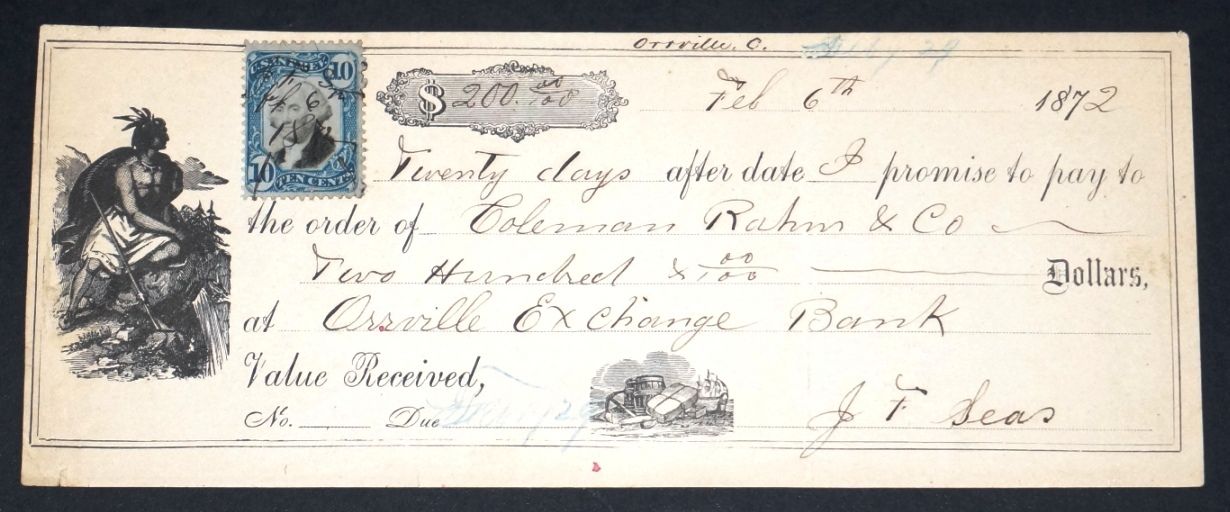 Orrville. O.
10 10
Feb 6
10 TEN CENTS
$ 200.00/100
Feb 6th 1872
Twenty days after date I promise to pay to
the order of Coleman Rahm & Co
Two Hundred & 00/100 Dollars,
at Orrville Exchange Bank
Value Received,
No. Due
J F Seas